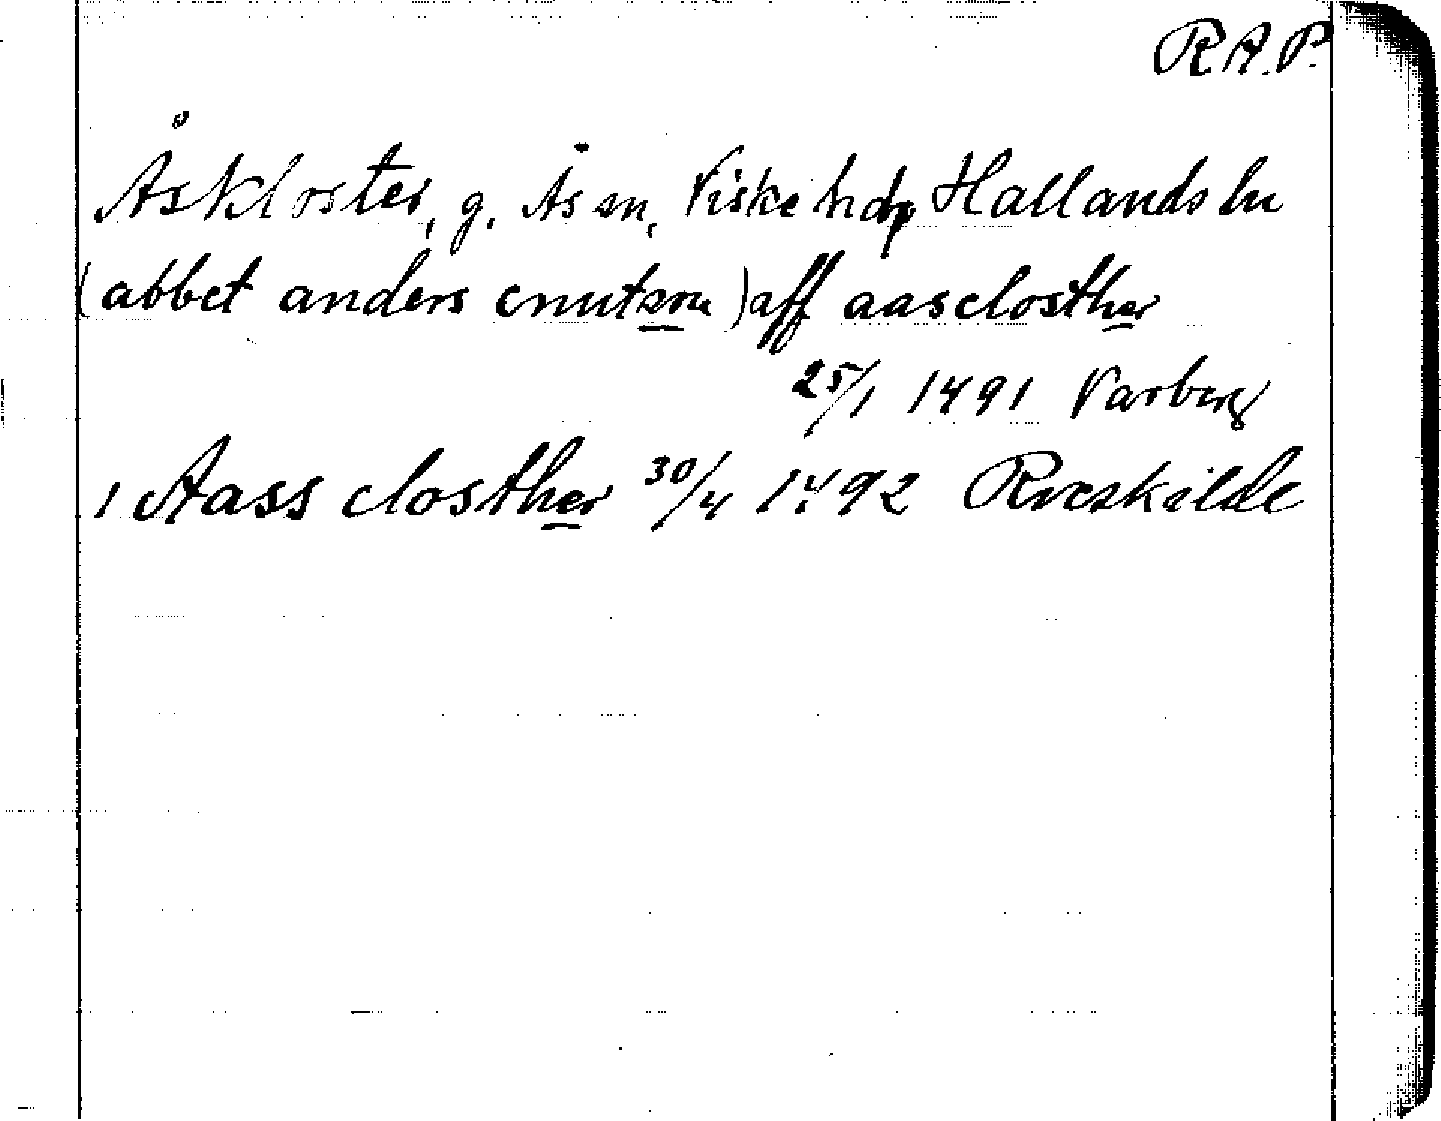 R.A.P.
Åskloster, g. Ås sn, Viske hd, Hallands ln
(abbet anders cnutzon) aff aasclosther
25/1 1491 Varberg
i Aass closther 30/4 1492 Roeskilde